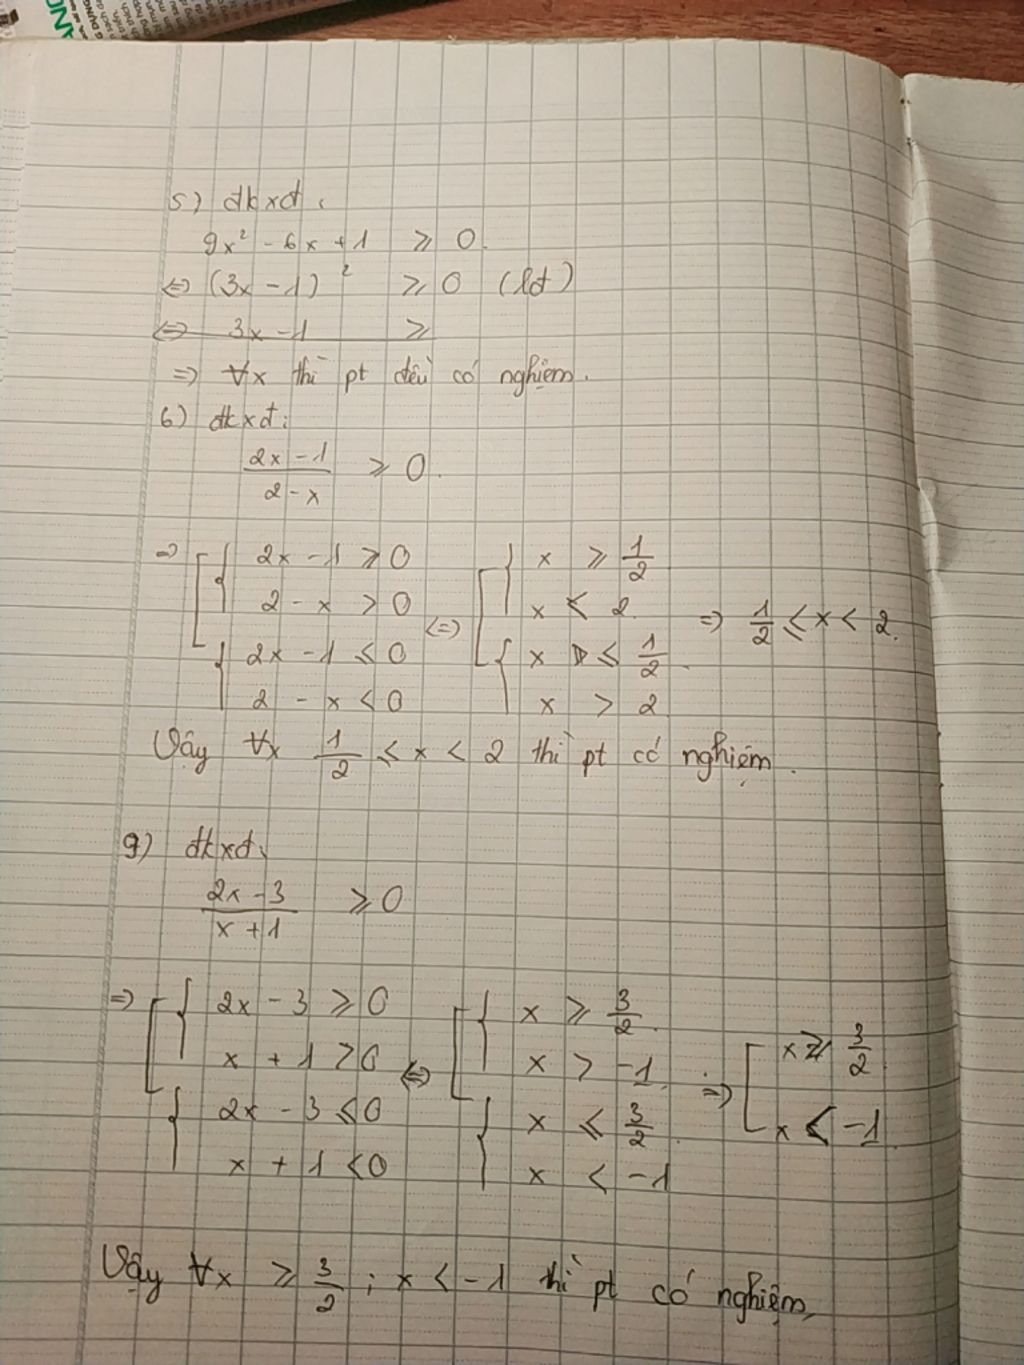 5) đkxđ:
9x² - 6x + 1 ⩾ 0.
⇔ (3x - 1)² ⩾ 0 (lđ)
⇔ 3x - 1 ⩾
⇒ ∀x thì pt đều có nghiệm.
6) đkxđ:
(2x - 1)/(2 - x) ⩾ 0.
⇒ [ { 2x - 1 ⩾ 0 ; 2 - x > 0 ; { 2x - 1 ⩽ 0 ; 2 - x < 0 ⇔ [ { x ⩾ 1/2 ; x < 2. ; { x ⩽ 1/2. ; x > 2 ⇒ 1/2 ⩽ x < 2.
Vậy ∀x 1/2 ⩽ x < 2 thì pt có nghiệm.
9) đkxđ:
(2x - 3)/(x + 1) ⩾ 0
⇒ [ { 2x - 3 ⩾ 0 ; x + 1 > 0 ; { 2x - 3 ⩽ 0 ; x + 1 < 0 ⇔ [ { x ⩾ 3/2. ; x > -1. ; { x ⩽ 3/2. ; x < -1 ⇒ [ x ⩾ 3/2 ; x < -1.
Vậy ∀x ⩾ 3/2 ; x < -1 thì pt có nghiệm.